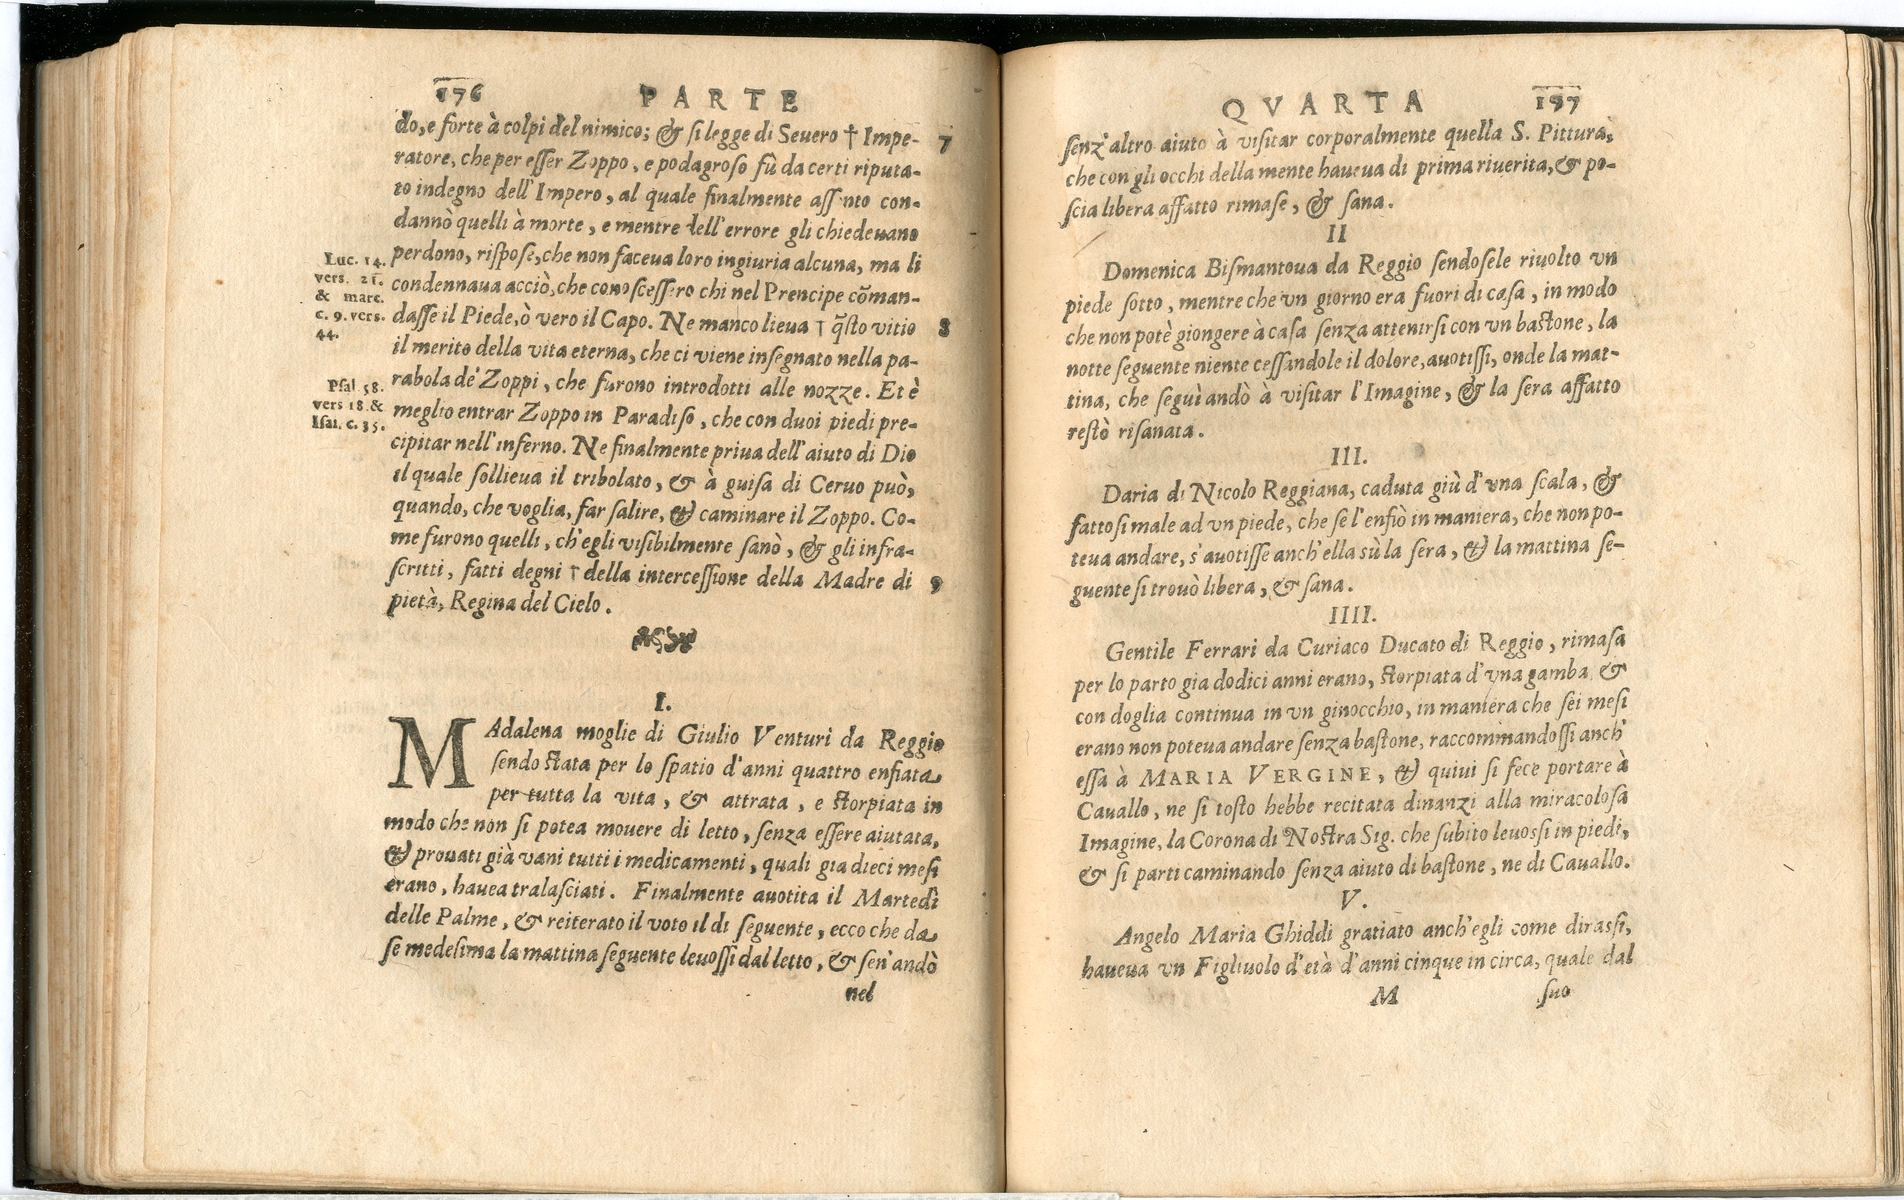 176 PARTE
do, e forte à colpi del nimico; & si legge di Seuero † Impe- 7
ratore, che per esser Zoppo, e podagroso fù da certi riputa-
to indegno dell'Impero, al quale finalmente assunto con-
dannò quelli à morte, e mentre dell'errore gli chiedeuano
perdono, rispose, che non faceua loro ingiuria alcuna, ma li
condennaua acciò, che conoscessero chi nel Prencipe cõman-
dasse il Piede, ò vero il Capo. Ne manco lieua † q̃sto vitio 8
il merito della vita eterna, che ci viene insegnato nella pa-
rabola de' Zoppi, che furono introdotti alle nozze. Et è
meglio entrar Zoppo in Paradiso, che con duoi piedi pre-
cipitar nell'inferno. Ne finalmente priua dell'aiuto di Dio
il quale sollieua il tribolato, & à guisa di Ceruo può,
quando, che voglia, far salire, & caminare il Zoppo. Co-
me furono quelli, ch'egli visibilmente sanò, & gli infra-
scritti, fatti degni † della intercessione della Madre di 9
pietà, Regina del Cielo.
Luc. 14.
vers. 21.
& marc.
c. 9. vers.
44.
Psal. 58.
vers 18. &
Isai. c. 35.
I.
MAdalena moglie di Giulio Venturi da Reggio
sendo stata per lo spatio d'anni quattro enfiata
per tutta la vita, & attrata, e storpiata in
modo che non si potea mouere di letto, senza essere aiutata,
& prouati già vani tutti i medicamenti, quali gia dieci mesi
erano, hauea tralasciati. Finalmente auotita il Martedì
delle Palme, & reiterato il voto il dì seguente, ecco che da
se medesima la mattina seguente leuossi dal letto, & sen'andò
nel
QVARTA 157
senz'altro aiuto à visitar corporalmente quella S. Pittura,
che con gli occhi della mente haueua di prima riuerita, & po-
scia libera affatto rimase, & sana.
II
Domenica Bismantoua da Reggio sendosele riuolto vn
piede sotto, mentre che vn giorno era fuori di casa, in modo
che non potè giongere à casa senza attenirsi con vn bastone, la
notte seguente niente cessandole il dolore, auotissi, onde la mat-
tina, che seguì andò à visitar l'Imagine, & la sera affatto
restò risanata.
III.
Daria di Nicolo Reggiana, caduta giù d'vna scala, &
fattosi male ad vn piede, che se l'enfiò in maniera, che non po-
teua andare, s'auotisse anch'ella sù la sera, & la mattina se-
guente si trouò libera, & sana.
IIII.
Gentile Ferrari da Curiaco Ducato di Reggio, rimasa
per lo parto gia dodici anni erano, storpiata d'vna gamba &
con doglia continua in vn ginocchio, in maniera che sei mesi
erano non poteua andare senza bastone, raccommandossi anch'
essa à MARIA VERGINE, & quiui si fece portare à
Cauallo, ne sì tosto hebbe recitata dinanzi alla miracolosa
Imagine, la Corona di Nostra Sig. che subito leuossi in piedi,
& si partì caminando senza aiuto di bastone, ne di Cauallo.
V.
Angelo Maria Ghiddi gratiato anch'egli come dirassi,
haueua vn Figliuolo d'età d'anni cinque in circa, quale dal
M suo